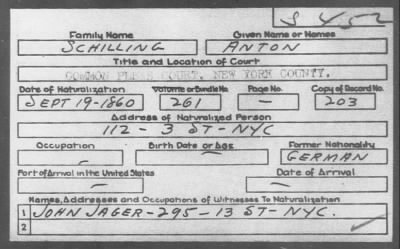 S 452
Family Name Given Name or Names
SCHILLING ANTON
Title and Location of Court
COMMON PLEAS COURT, NEW YORK COUNTY.
Date of Naturalization Volume or Bundle No. Page No. Copy of Record No.
SEPT 19-1860 261 — 203
Address of Naturalized Person
112 - 3 ST - NYC
Occupation Birth Date or Age Former Nationality
— — GERMAN
Port of Arrival in the United States Date of Arrival
— —
Names, Addresses and Occupations of Witnesses To Naturalization
1 JOHN JAGER - 295 - 13 ST - NYC.
2